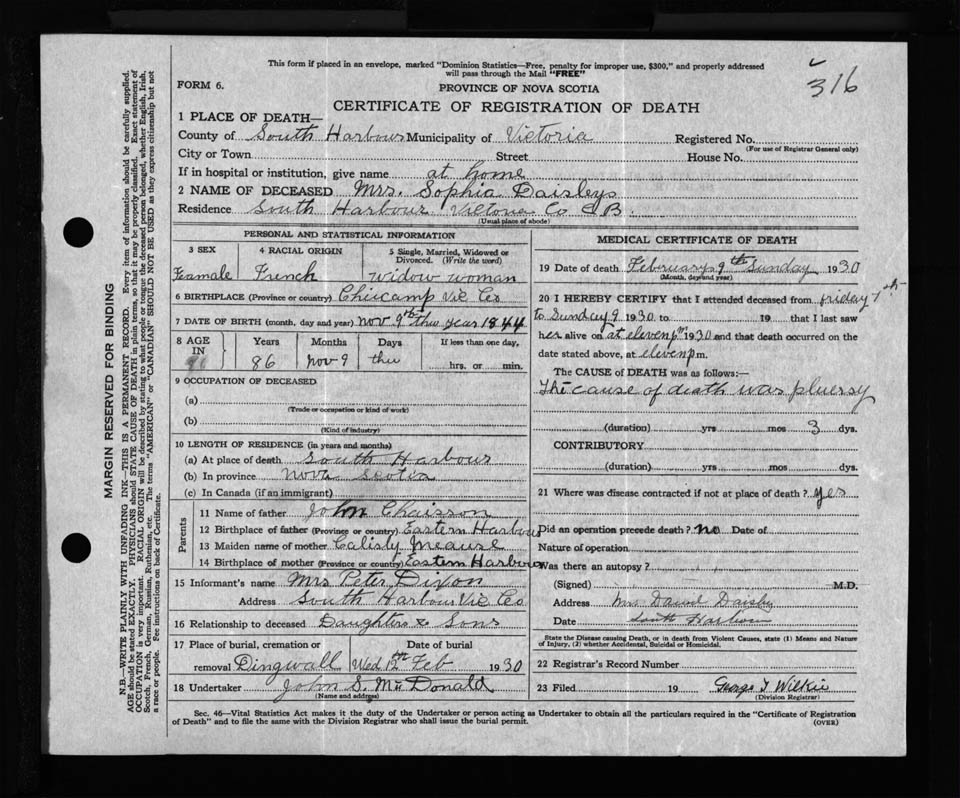 This form if placed in an envelope, marked "Dominion Statistics—Free, penalty for improper use, $300," and properly addressed
will pass through the Mail "FREE"
316
FORM 6.
PROVINCE OF NOVA SCOTIA
CERTIFICATE OF REGISTRATION OF DEATH
1 PLACE OF DEATH—
County of South Harbour Municipality of Victoria Registered No.
(For use of Registrar General only)
City or Town Street House No.
If in hospital or institution, give name at home
2 NAME OF DECEASED Mrs. Sophia Daisleys
Residence South Harbour Victoria Co C B.
(Usual place of abode)
PERSONAL AND STATISTICAL INFORMATION
3 SEX 4 RACIAL ORIGIN 5 Single, Married, Widowed or
Divorced. (Write the word)
Feamale French widow woman
6 BIRTHPLACE (Province or country) Chicamp Vic Co
7 DATE OF BIRTH (month, day and year) nov 9th thu year 1844
8 AGE IN Years Months Days If less than one day,
86 nov 9 thu hrs. or min.
9 OCCUPATION OF DECEASED
(a)
(Trade or occupation or kind of work)
(b)
(Kind of industry)
10 LENGTH OF RESIDENCE (in years and months)
(a) At place of death South Harbour
(b) In province Nova Scotia
(c) In Canada (if an immigrant)
Parents
11 Name of father John Chaisson
12 Birthplace of father (Province or country) Eastern Harbour
13 Maiden name of mother Calisty Meause
14 Birthplace of mother (Province or country) Eastern Harbour
15 Informant's name Mrs Peter Dixon
Address South Harbour Vic Co
16 Relationship to deceased Daughter & Sons
17 Place of burial, cremation or Date of burial
removal Dingwall Wed 12th Feb 1930
18 Undertaker John S. McDonald
(Name and address)
MEDICAL CERTIFICATE OF DEATH
19 Date of death February 9th Sunday 1930
(Month, day and year)
20 I HEREBY CERTIFY that I attended deceased from friday 7th
to Sunday 9 1930 to 19 that I last saw
her alive on at eleven pm 1930 and that death occurred on the
date stated above, at eleven p m.
The CAUSE OF DEATH was as follows:—
The cause of death was pluersy
(duration) yrs mos 3 dys.
CONTRIBUTORY
(duration) yrs mos dys.
21 Where was disease contracted if not at place of death? yes
Did an operation precede death? no Date of
Nature of operation
Was there an autopsy?
(Signed) M.D.
Address Mrs David Daisley
Date South Harbour
State the Disease causing Death, or in death from Violent Causes, state (1) Means and Nature
of Injury, (2) whether Accidental, Suicidal or Homicidal.
22 Registrar's Record Number
23 Filed 19 George T Wilkie
(Division Registrar)
Sec. 46—Vital Statistics Act makes it the duty of the Undertaker or person acting as Undertaker to obtain all the particulars required in the "Certificate of Registration
of Death" and to file the same with the Division Registrar who shall issue the burial permit.
(OVER)
MARGIN RESERVED FOR BINDING
N.B.—WRITE PLAINLY WITH UNFADING INK—THIS IS A PERMANENT RECORD. Every item of information should be carefully supplied.
AGE should be stated EXACTLY. PHYSICIANS should STATE CAUSE OF DEATH in plain terms, so that it may be properly classified. Exact statement of
OCCUPATION is very important. RACIAL ORIGIN will be described by stating to what people or tongue the deceased person belonged, whether English, Irish,
Scotch, French, German, Russian, Ruthenian, etc. The terms "AMERICAN" or "CANADIAN" SHOULD NOT BE USED as they express citizenship but not
a race or people. Fee instructions on back of Certificate.